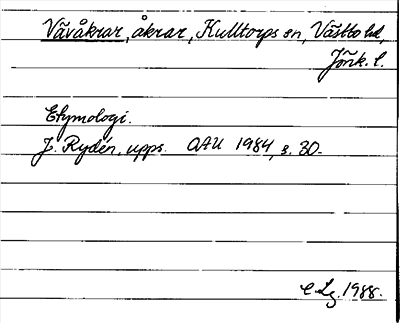 Vävåkrar, åkrar, Kulltorps sn, Västbo hd,
Jönk. l.
Etymologi.
J. Rydén, upps. OAU 1984, s. 30.
C Lg. 1988.